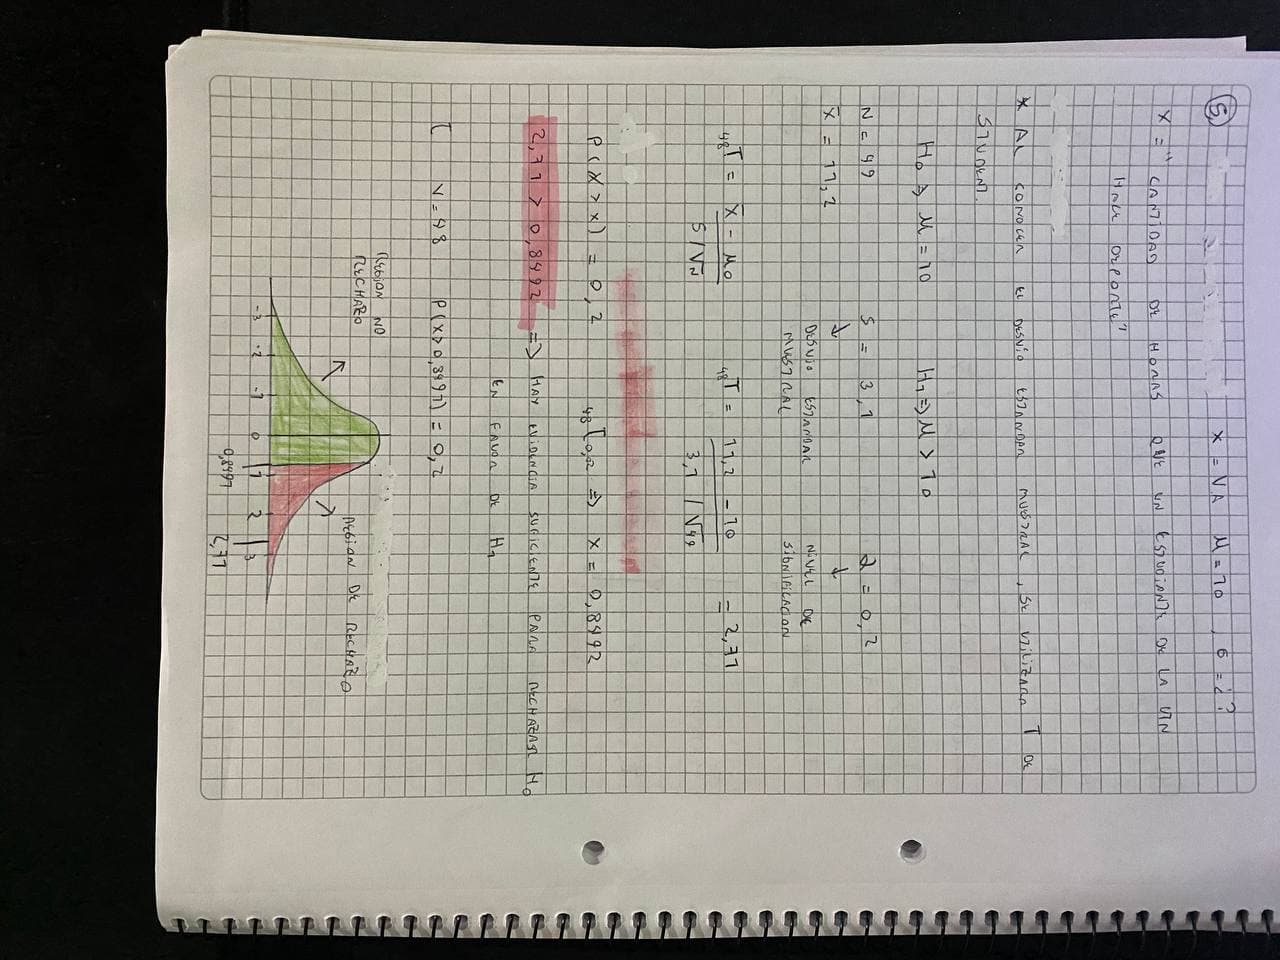 5)
X = VA μ = 10 , σ = ¿?
X = " CANTIDAD DE HORAS QUE UN ESTUDIANTE DE LA UTN
HACE DEPORTE"
* AL CONOCER EL DESVIO ESTANDAR MUESTRAL , SE UTILIZARA T DE
STUDENT.
H₀ => μ = 10 H₁ => μ > 10
N = 49 S = 3,1 α = 0,2
X̄ = 11,2 ↓ ↓
DESVIO ESTANDAR NIVEL DE
MUESTRAL SIGNIFICACION
₄₈T = X̄ - μ₀ / S/√N ₄₈T = 11,2 - 10 / 3,1 / √49 = 2,71
P(X > x) = 0,2 ₄₈T₀,₂ => x = 0,8492
2,71 > 0,8492 => HAY EVIDENCIA SUFICIENTE PARA RECHAZAR H₀
EN FAVOR DE H₁
V = 48 P(X>0,8491) = 0,2
REGION NO
RECHAZO
REGION DE RECHAZO
-3 -2 -1 0 1 2 3
0,8491 2,71